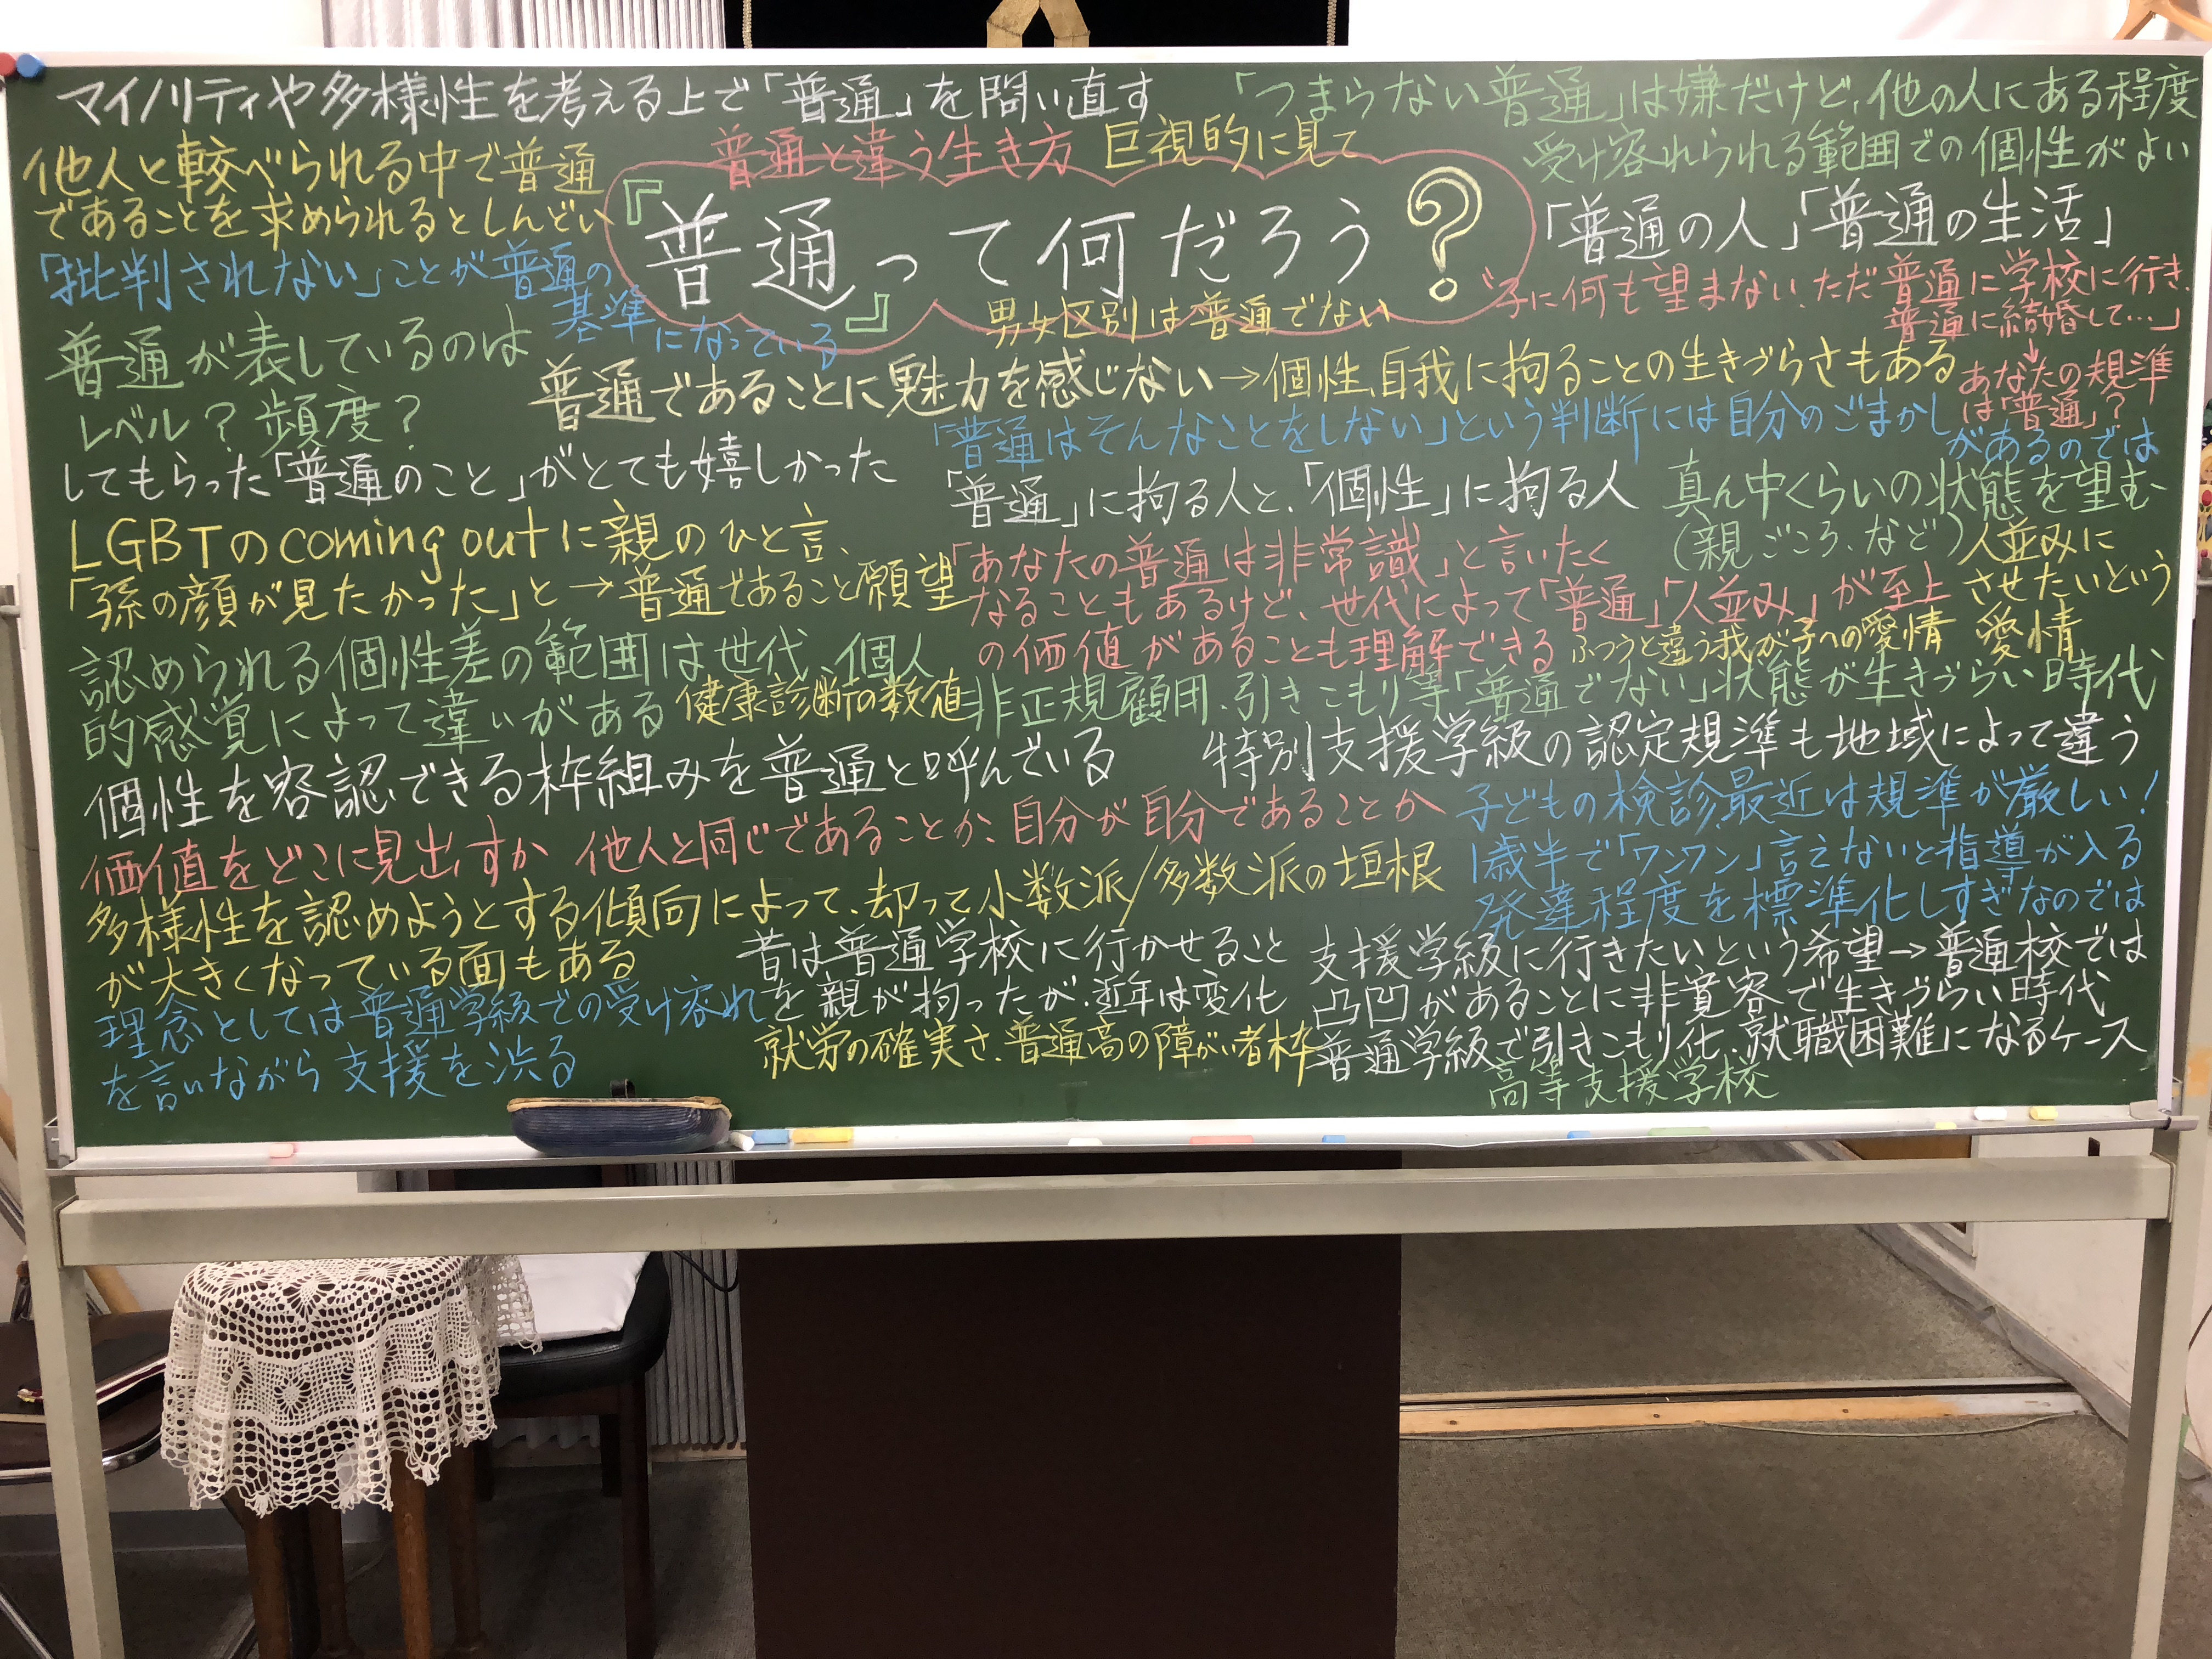 マイノリティや多様性を考える上で「普通」を問い直す
「つまらない普通」は嫌だけど、他の人にある程度
受け容れられる範囲での個性がよい
普通と違う生き方
巨視的に見て
他人と較べられる中で普通
であることを求められるとしんどい
『普通』って何だろう?
「普通の人」「普通の生活」
「批判されない」ことが普通の
基準になっている
男女区別は普通でない
"子に何も望まない、ただ普通に学校に行き、
普通に結婚して…」
↓
あなたの規準
は「普通」?
普通が表しているのは
レベル?頻度?
普通であることに魅力を感じない→個性、自我に拘ることの生きづらさもある
「普通はそんなことをしない」という判断には自分のごまかし
があるのでは
してもらった「普通のこと」がとても嬉しかった
「普通」に拘る人と、「個性」に拘る人
真ん中くらいの状態を望む
(親ごころ、など)
人並みに
させたいという
愛情
LGBTのcoming outに親のひと言、
「孫の顔が見たかった」と→普通であること願望
「あなたの普通は非常識」と言いたく
なることもあるけど、世代によって「普通」「人並み」が至上
の価値があることも理解できる
ふつうと違う我が子への愛情
認められる個性差の範囲は世代、個人
的感覚によって違いがある
健康診断の数値
非正規顧用、引きこもり等「普通でない」状態が生きづらい時代
個性を容認できる枠組みを普通と呼んでいる
特別支援学級の認定規準も地域によって違う
価値をどこに見出すか 他人と同じであることか、自分が自分であることか
子どもの検診、最近は規準が厳しい!
1歳半で「ワンワン」言えないと指導が入る
発達程度を標準化しすぎなのでは
多様性を認めようとする傾向によって、却って小数派/多数派の垣根
が大きくなっている面もある
昔は普通学校に行かせること
を親が拘ったが、近年は変化
支援学級に行きたいという希望→普通校では
凸凹があることに非寛容で生きづらい時代
理念としては普通学級での受け容れ
を言いながら支援を渋る
就労の確実さ、普通高の障がい者枠
普通学級で引きこもり化、就職困難になるケース
高等支援学校